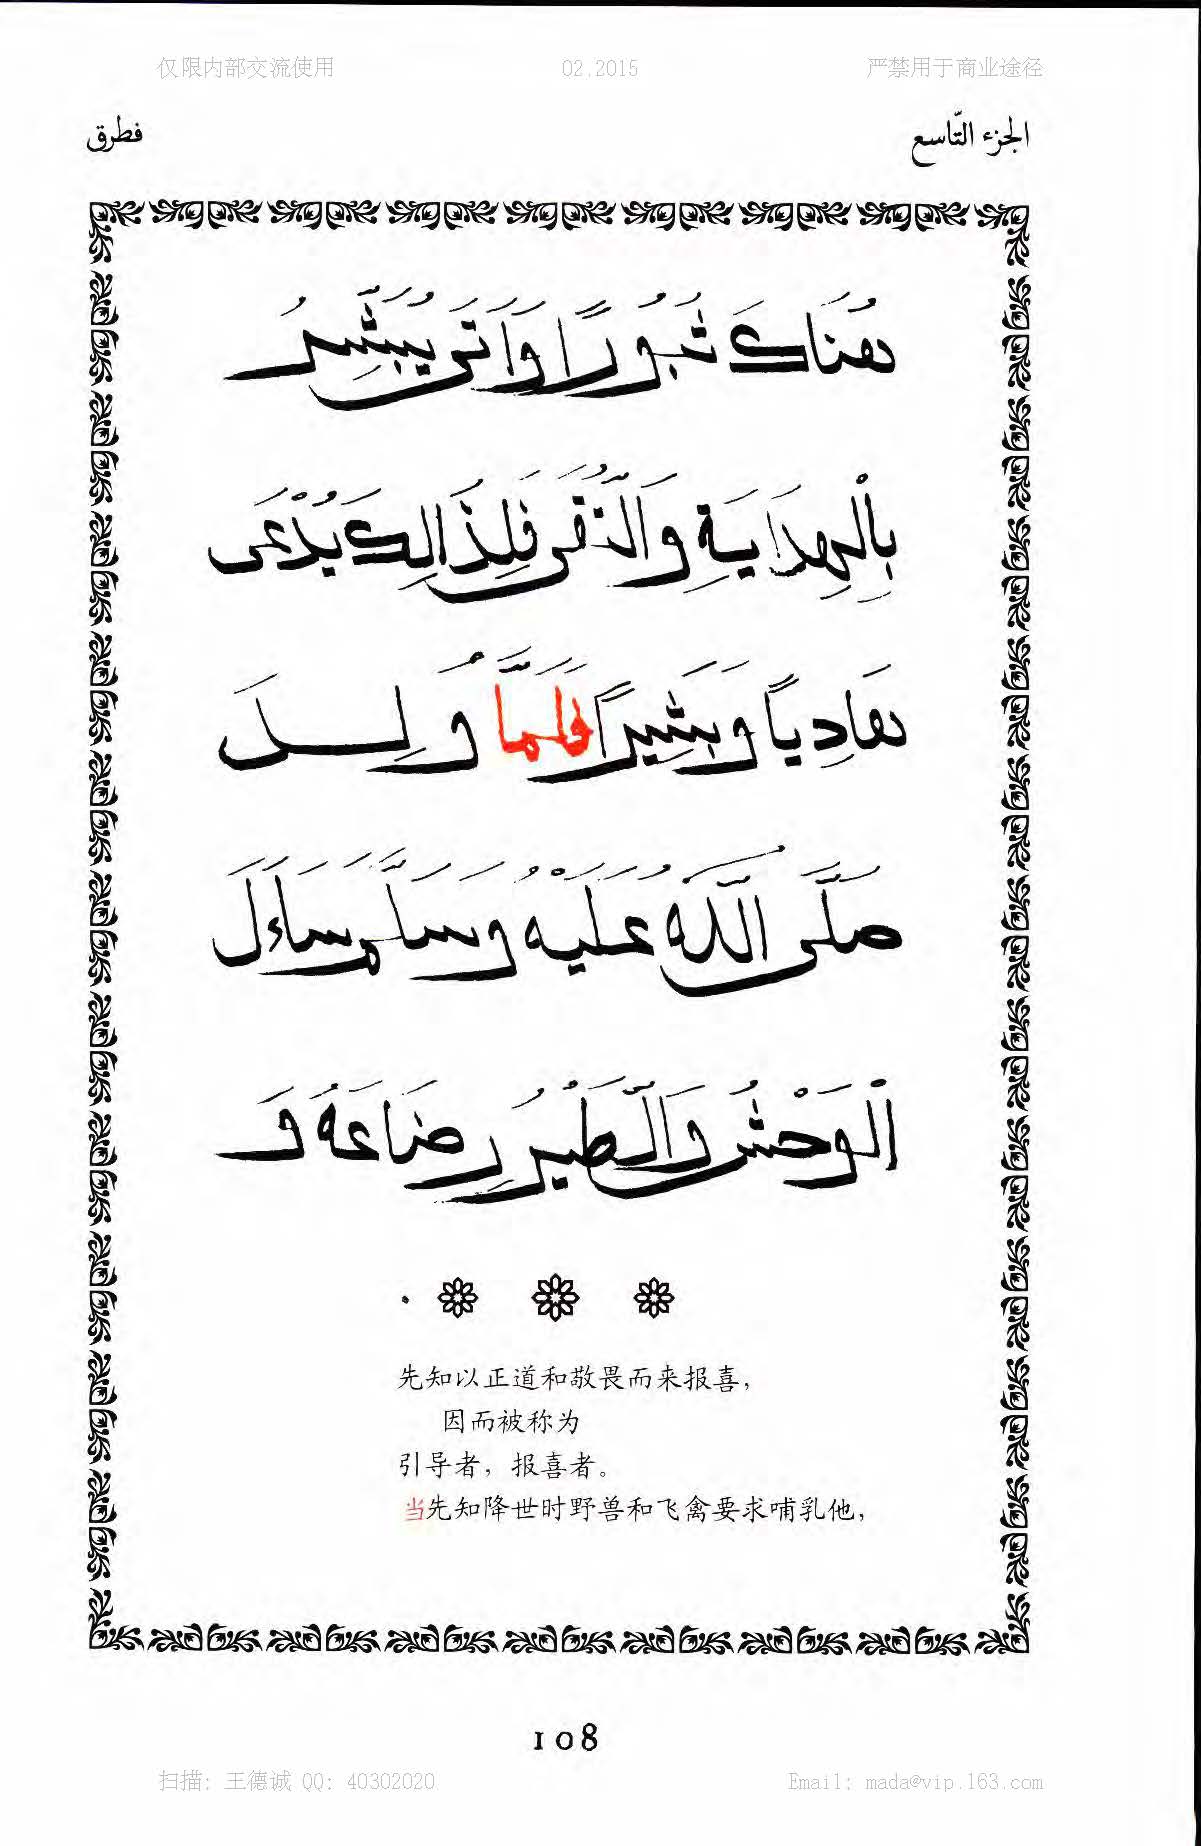 仅限内部交流使用 02.2015 严禁用于商业途径
الجزء التّاسع فطرق
هُنَاكَ ثُبُورًا وَأَتَى يُبَشِّرُ
بِالْهِدَايَةِ وَالتُّقَى فَلِذَالِكَ يُدْعَى
هَادِيًا وَبَشِيرًا فَلَمَّا وُلِدَ
صَلَّى اللَّهُ عَلَيْهِ وَسَلَّمَ سَاءَلَ
الْوَحْشُ وَالطَّيْرُ رِضَاعَهُ وَ
先知以正道和敬畏而来报喜,
因而被称为
引导者,报喜者。
当先知降世时野兽和飞禽要求哺乳他,
108
扫描: 王德诚 QQ: 40302020 Email: mada@vip.163.com